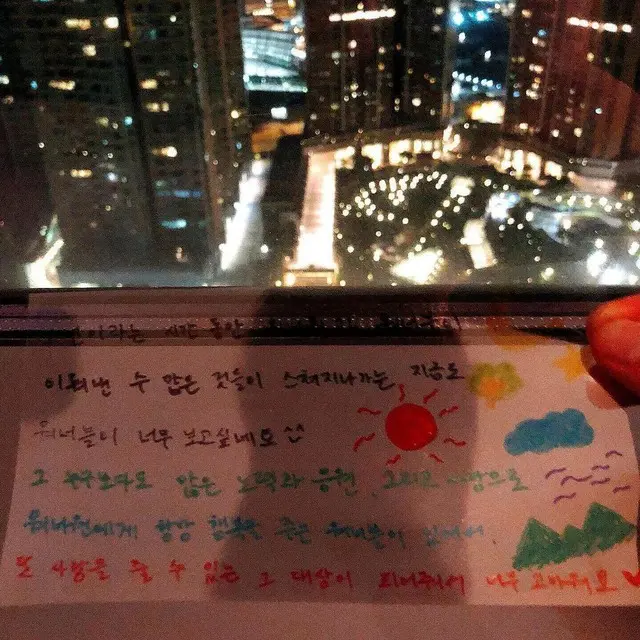 이라는 시간 동안
이뤄낸 수 많은 것들이 스쳐지나가는 지금도
워너블이 너무 보고싶네요 ^^
그 누구보다도 많은 노력과 응원, 그리고 사랑으로
워너원에게 항상 행복을 주는 워너블이 있어서,
또 사랑을 줄 수 있는 그 대상이 되어줘서 너무 고마워요 ♥